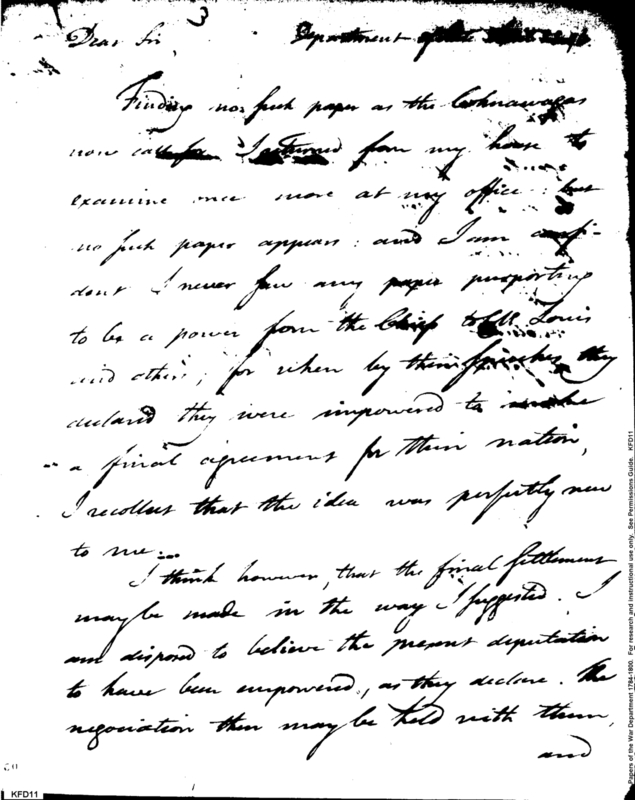 3
Dear Sir, Department of
Finding no such paper as the Cohnawagas
now call for I returned from my house to
examine once more at my office: but
no such paper appears: and I am confi-
dent I never saw any paper purporting
to be a power from the Chiefs to Col. Louis
and others; for when by their speeches they
declared they were impowered to make
a final agreement for their nation,
I recollect that the idea was perfectly new
to me.
I think however, that the final settlement
may be made in the way I suggested. I
am disposed to believe the present deputation
to have been empowered, as they declare. The
negociation then may be held with them,
and
KFD11
Papers of the War Department 1784-1800. For research and instructional use only. See Permissions Guide. KFD11